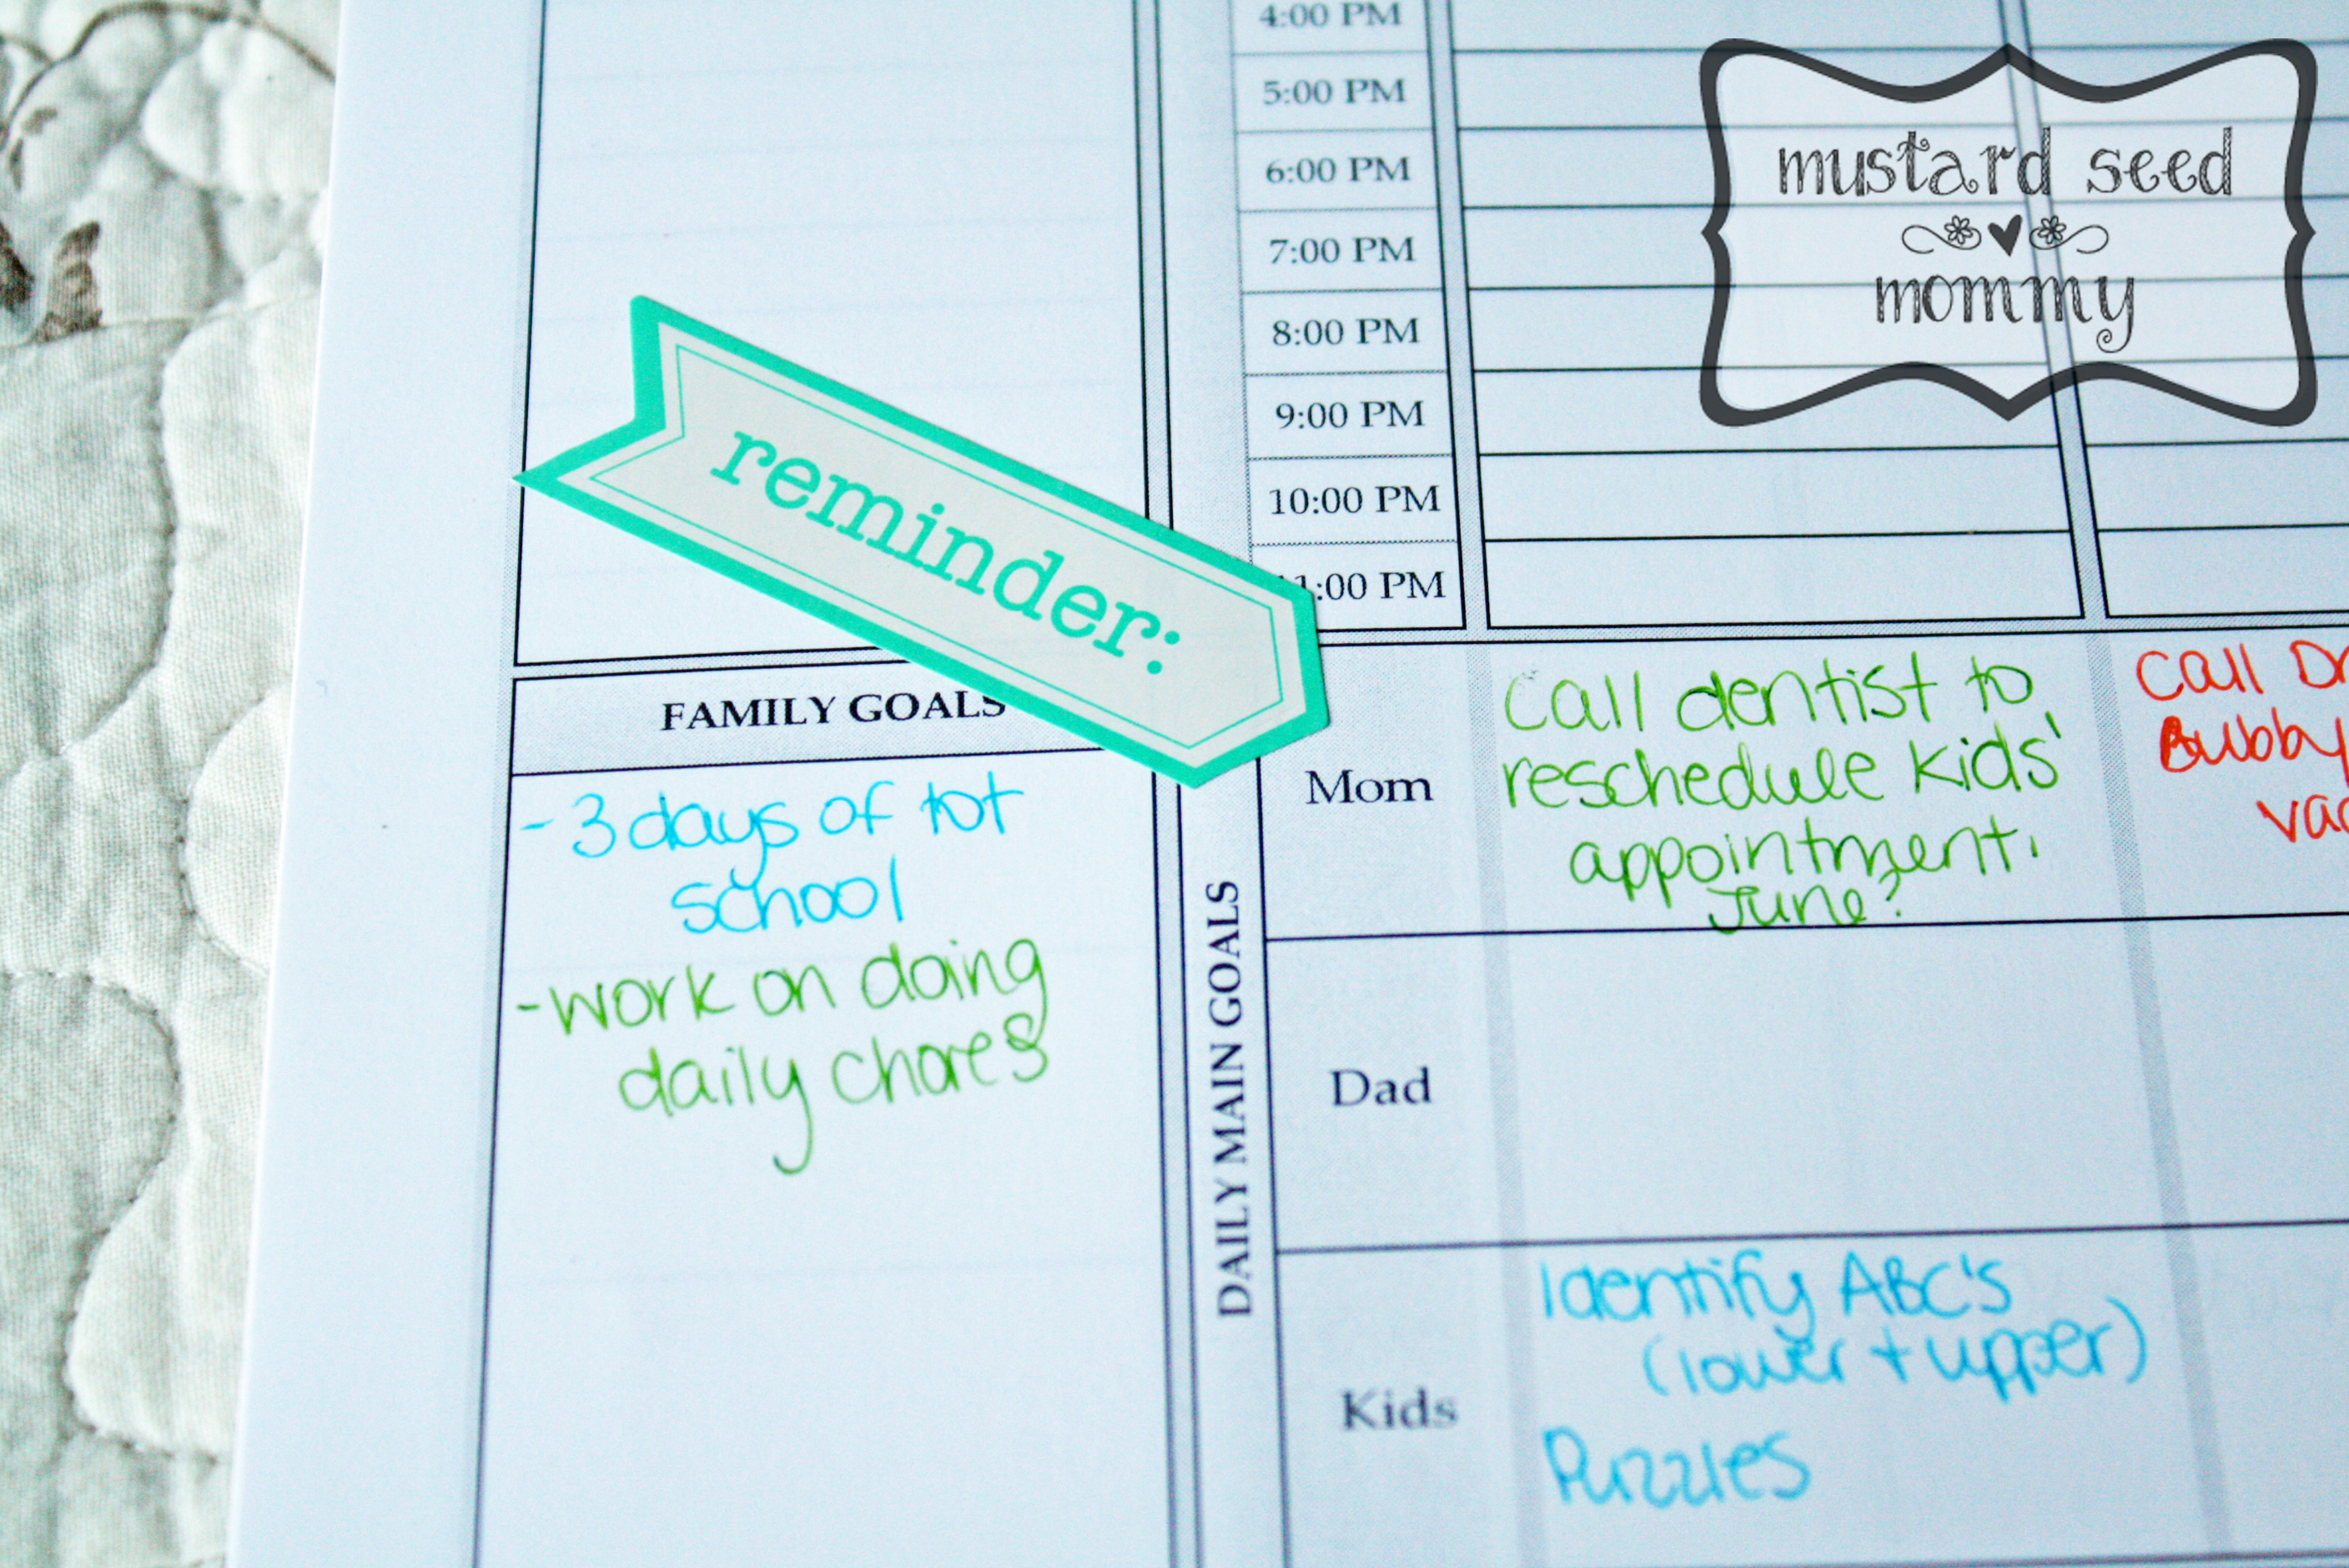 4:00 PM
5:00 PM
6:00 PM
7:00 PM
8:00 PM
9:00 PM
10:00 PM
:00 PM
mustard seed
mommy
reminder:
FAMILY GOALS
-3 days of tot
school
-work on doing
daily chores
DAILY MAIN GOALS
Mom
Call dentist to
reschedule kids'
appointment.
June?
Call
Bubby
Dad
Kids
Identify ABC's
(lower + upper)
Puzzles